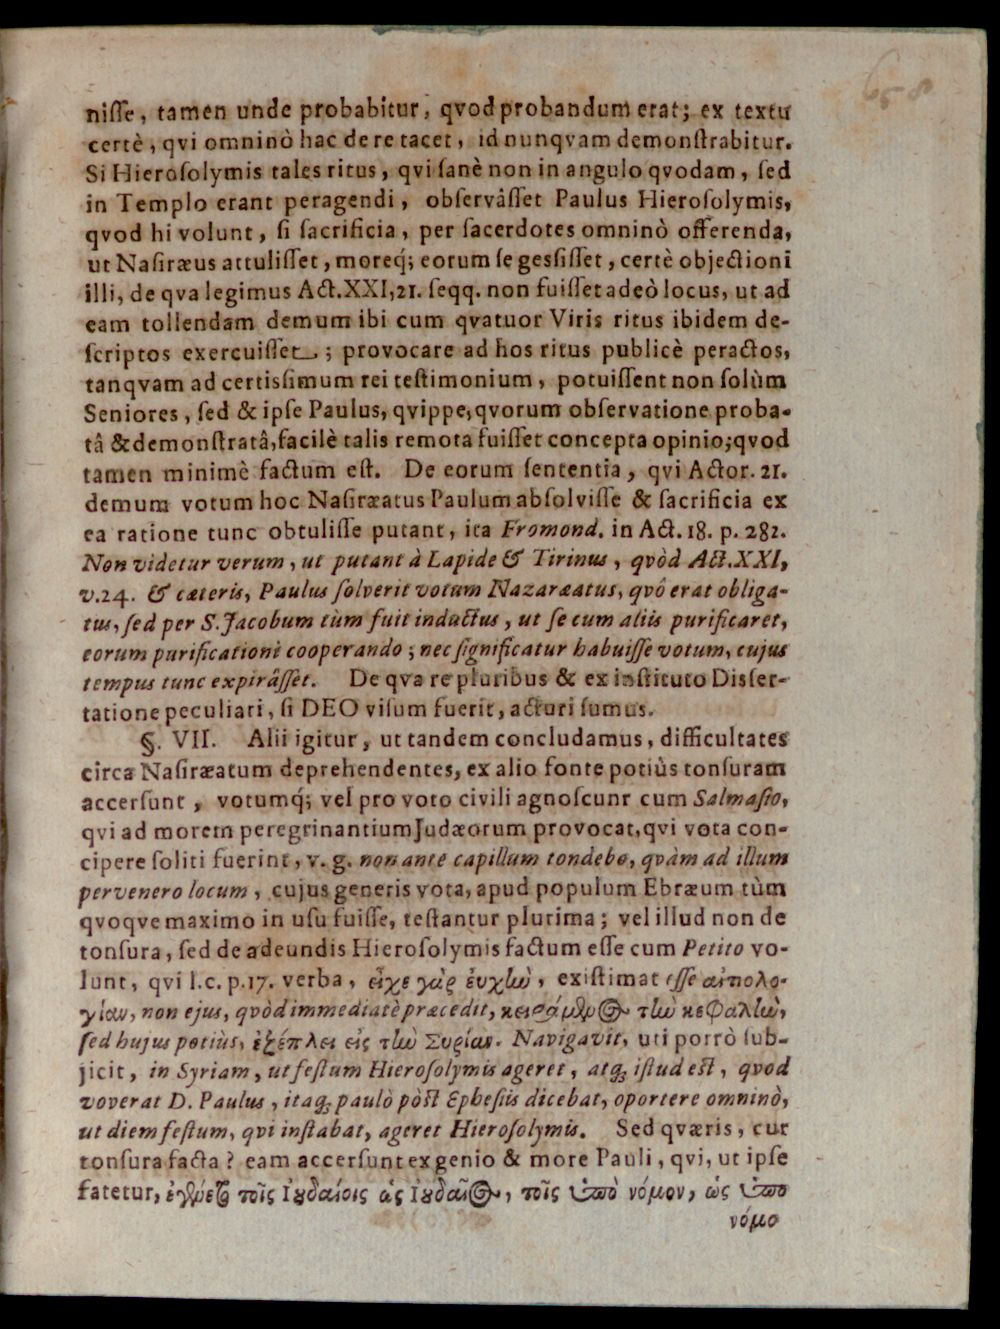 658
niſſe, tamen unde probabitur, qvod probandum erat; ex textu
certè, qvi omninò hac de re tacet, id nunqvam demonſtrabitur.
Si Hieroſolymis tales ritus, qvi ſanè non in angulo qvodam, ſed
in Templo erant peragendi, obſervâſſet Paulus Hieroſolymis,
qvod hi volunt, ſi ſacrificia, per ſacerdotes omninò offerenda,
ut Naſiræus attuliſſet, moreq́; eorum ſe geſſiſſet, certè objectioni
illi, de qva legimus Act. XXI, 21. ſeqq. non fuiſſet adeò locus, ut ad
eam tollendam demum ibi cum qvatuor Viris ritus ibidem de-
ſcriptos exercuiſſet; provocare ad hos ritus publicè peractos,
tanqvam ad certiſſimum rei teſtimonium, potuiſſent non ſolùm
Seniores, ſed & ipſe Paulus, qvippe, qvorum obſervatione proba-
tâ & demonſtratâ, facilè talis remota fuiſſet concepta opinio; qvod
tamen minimè factum eſt. De eorum ſententia, qvi Actor. 21.
demum votum hoc Naſiræatus Paulum abſolviſſe & ſacrificia ex
ea ratione tunc obtuliſſe putant, ita Fromond. in Act. 18. p. 282.
Non videtur verum, ut putant à Lapide & Tirinus, qvòd Act. XXI,
v. 24. & cæteris, Paulus ſolverit votum Nazaræatus, qvô erat obliga-
tus, ſed per S. Jacobum tùm fuit inductus, ut ſe cum aliis purificaret,
eorum purificationi cooperando; nec ſignificatur habuiſſe votum, cujus
tempus tunc expirâſſet. De qva re pluribus & ex inſtituto Diſſer-
tatione peculiari, ſi DEO viſum fuerit, acturi ſumus.
§. VII. Alii igitur, ut tandem concludamus, difficultates
circa Naſiræatum deprehendentes, ex alio fonte potiùs tonſuram
accerſunt, votumq́; vel pro voto civili agnoſcunr cum Salmaſio,
qvi ad morem peregrinantium Judæorum provocat, qvi vota con-
cipere ſoliti fuerint, v. g. non ante capillum tondebo, qvàm ad illum
pervenero locum, cujus generis vota, apud populum Ebræum tùm
qvoqve maximo in uſu fuiſſe, teſtantur plurima; vel illud non de
tonſura, ſed de adeundis Hieroſolymis factum eſſe cum Petito vo-
lunt, qvi l. c. p. 17. verba, εἶχε γὰρ ἐυχὴν, exiſtimat eſſe αἰτιολο-
γίαν, non ejus, qvòd immediatè præcedit, κειράμενος τὴν κεφαλὴν,
ſed hujus potiùs, ἐξέπλει εἰς τὴν Συρίαν. Navigavit, uti porrò ſub-
jicit, in Syriam, ut feſtum Hieroſolymis ageret, atq; iſtud eſt, qvod
voverat D. Paulus, itaq; paulò pòſt Epheſiis dicebat, oportere omninò,
ut diem feſtum, qvi inſtabat, ageret Hieroſolymis. Sed qværis, cur
tonſura facta? eam accerſunt ex genio & more Pauli, qvi, ut ipſe
fatetur, ἐγένετο τοῖς Ιουδαίοις ὡς Ιουδαῖος, τοῖς ὑπὸ νόμον, ὡς ὑπὸ
νόμο